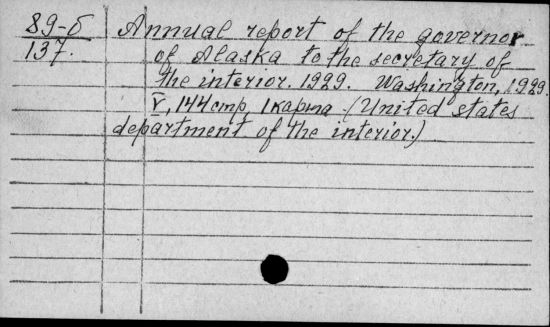 89-б Annual report of the governor
137. of Alaska to the secretary of
the interior. 1929. Washington, 1929.
V, 144 стр, 1 карта (United states
department of the interior.)